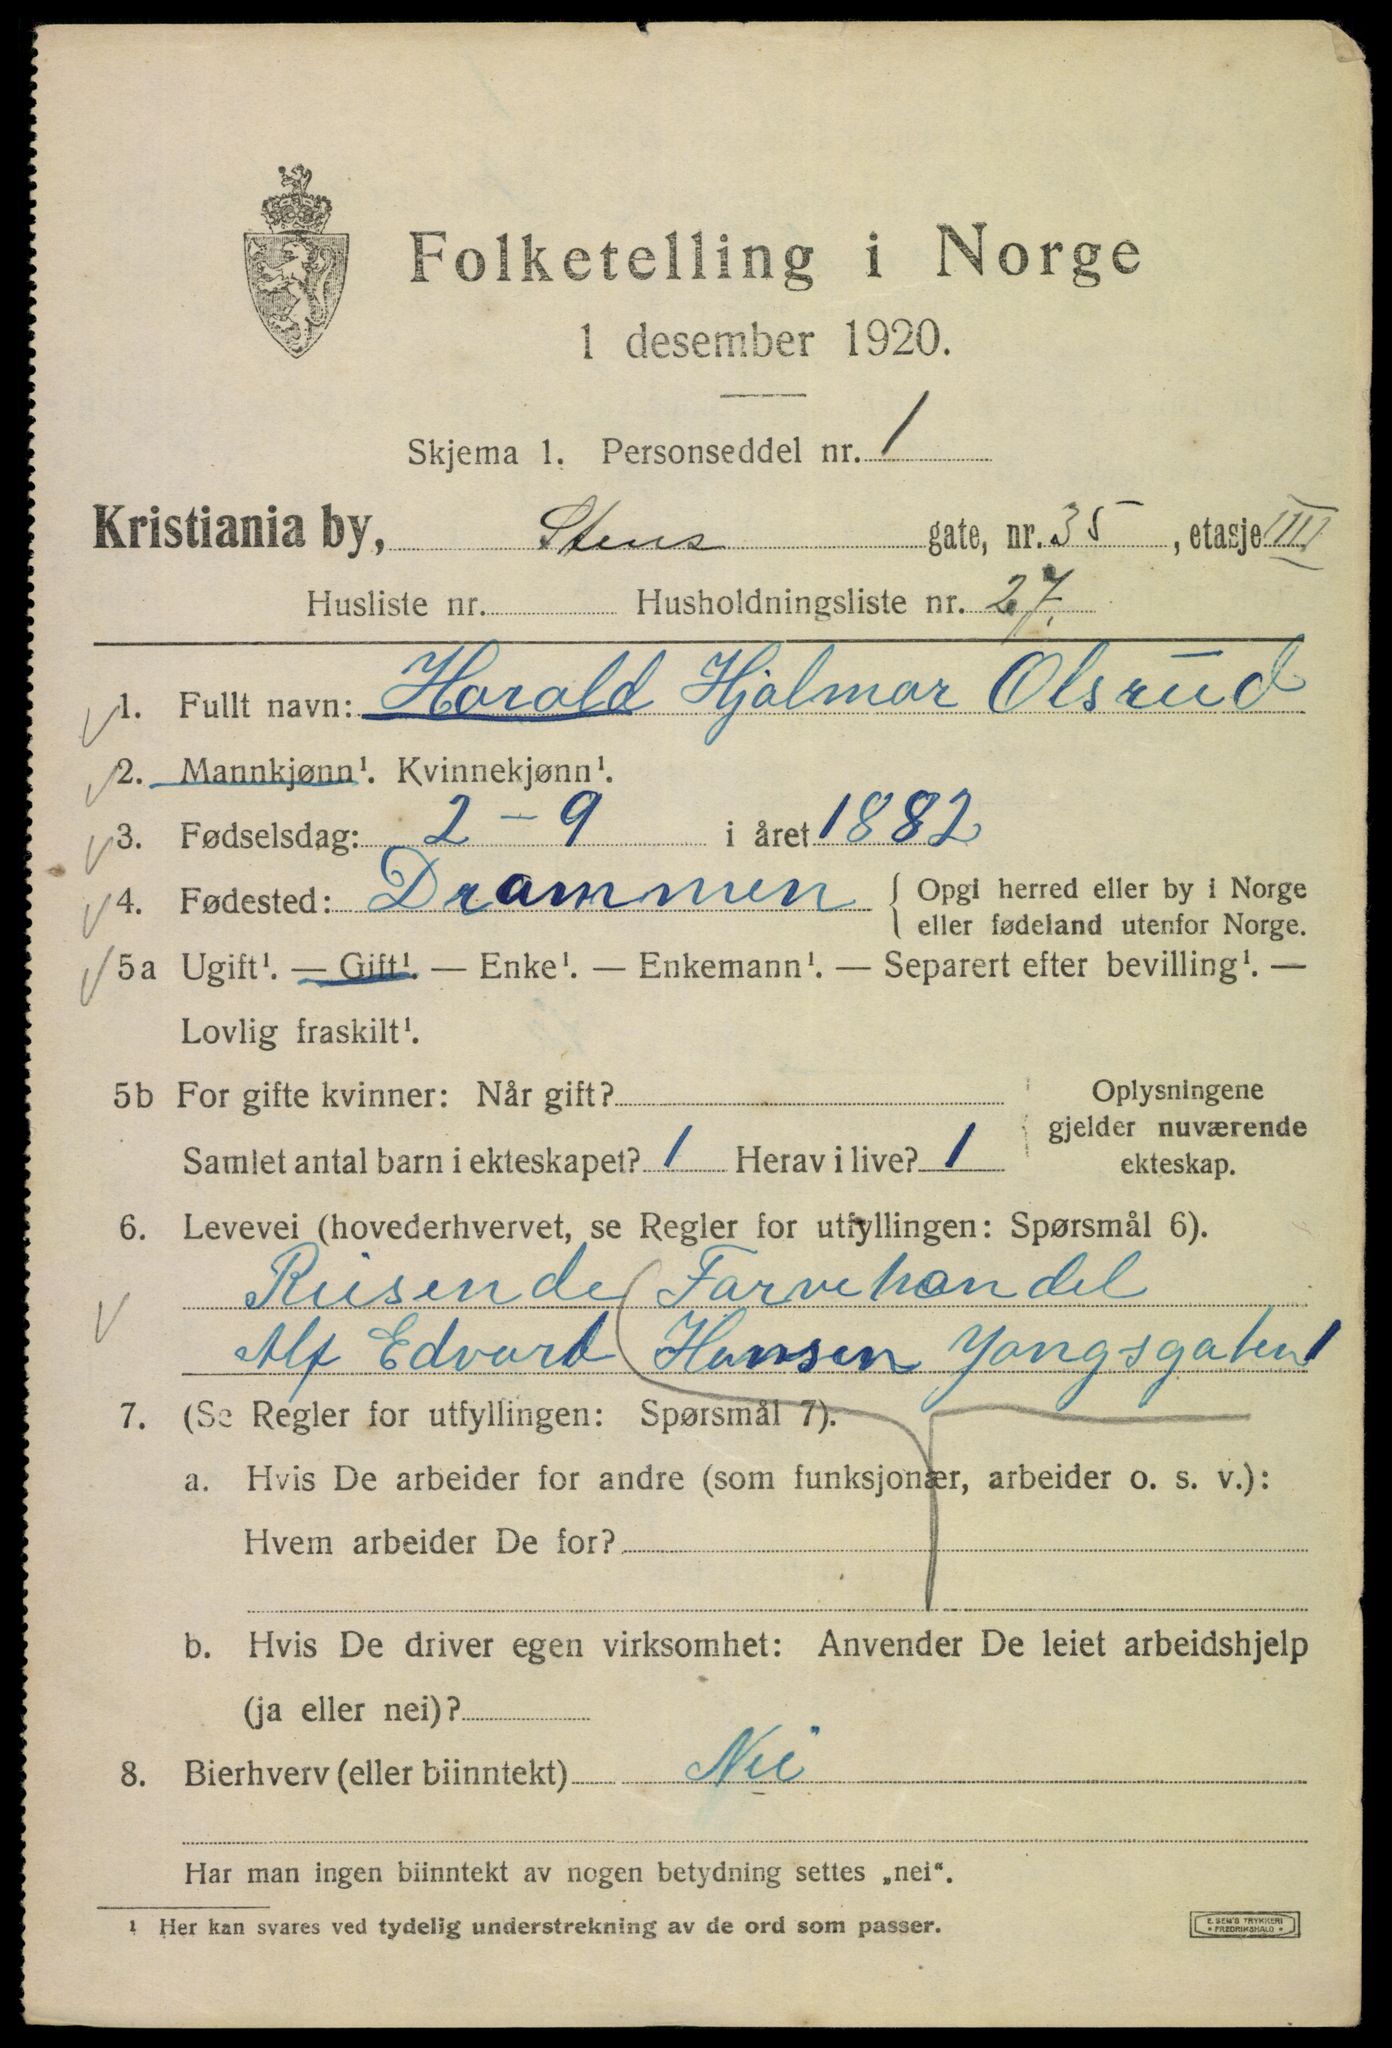 Folketelling i Norge
1 desember 1920.
Skjema 1. Personseddel nr. 1
Kristiania by, Stens gate, nr. 35, etasje III
Husliste nr. Husholdningsliste nr. 27.
1. Fullt navn: Harald Hjalmar Olsrud
2. Mannkjønn¹. Kvinnekjønn¹.
3. Fødselsdag: 2 - 9 i året 1882
4. Fødested: Drammen { Opgi herred eller by i Norge
eller fødeland utenfor Norge.
5a Ugift¹. — Gift¹. — Enke¹. — Enkemann¹. — Separert efter bevilling¹. —
Lovlig fraskilt¹.
5b For gifte kvinner: Når gift? Oplysningene
gjelder nuværende
Samlet antal barn i ekteskapet? 1 Herav i live? 1 ekteskap.
6. Levevei (hovederhvervet, se Regler for utfyllingen: Spørsmål 6).
Reisende Farvehandel
Alf Edvard Hansen Yongsgaten 1
7. (Se Regler for utfyllingen: Spørsmål 7).
a. Hvis De arbeider for andre (som funksjonær, arbeider o. s. v.):
Hvem arbeider De for?
b. Hvis De driver egen virksomhet: Anvender De leiet arbeidshjelp
(ja eller nei)?
8. Bierhverv (eller biinntekt) Nei
Har man ingen biinntekt av nogen betydning settes „nei“.
¹ Her kan svares ved tydelig understrekning av de ord som passer.
E. SEM'S TRYKKERI
• FREDRIKSHALD •